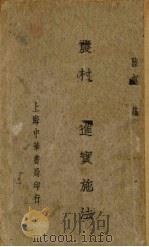 農村 進實施法
上海中華書局印行